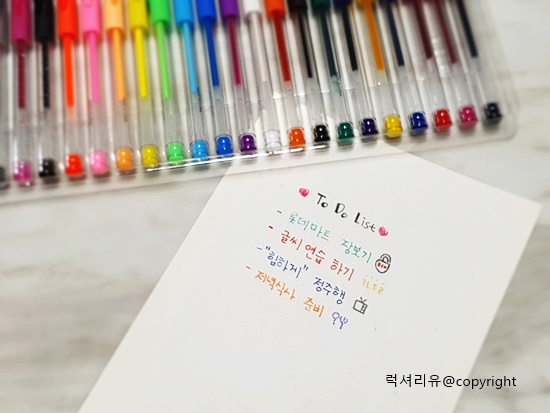 To Do List
- 롯데마트 장보기
- 글씨연습 하기 ㄱㄴㄷㄹ
- "힙하게" 정주행
- 저녁식사 준비
럭셔리유@copyright